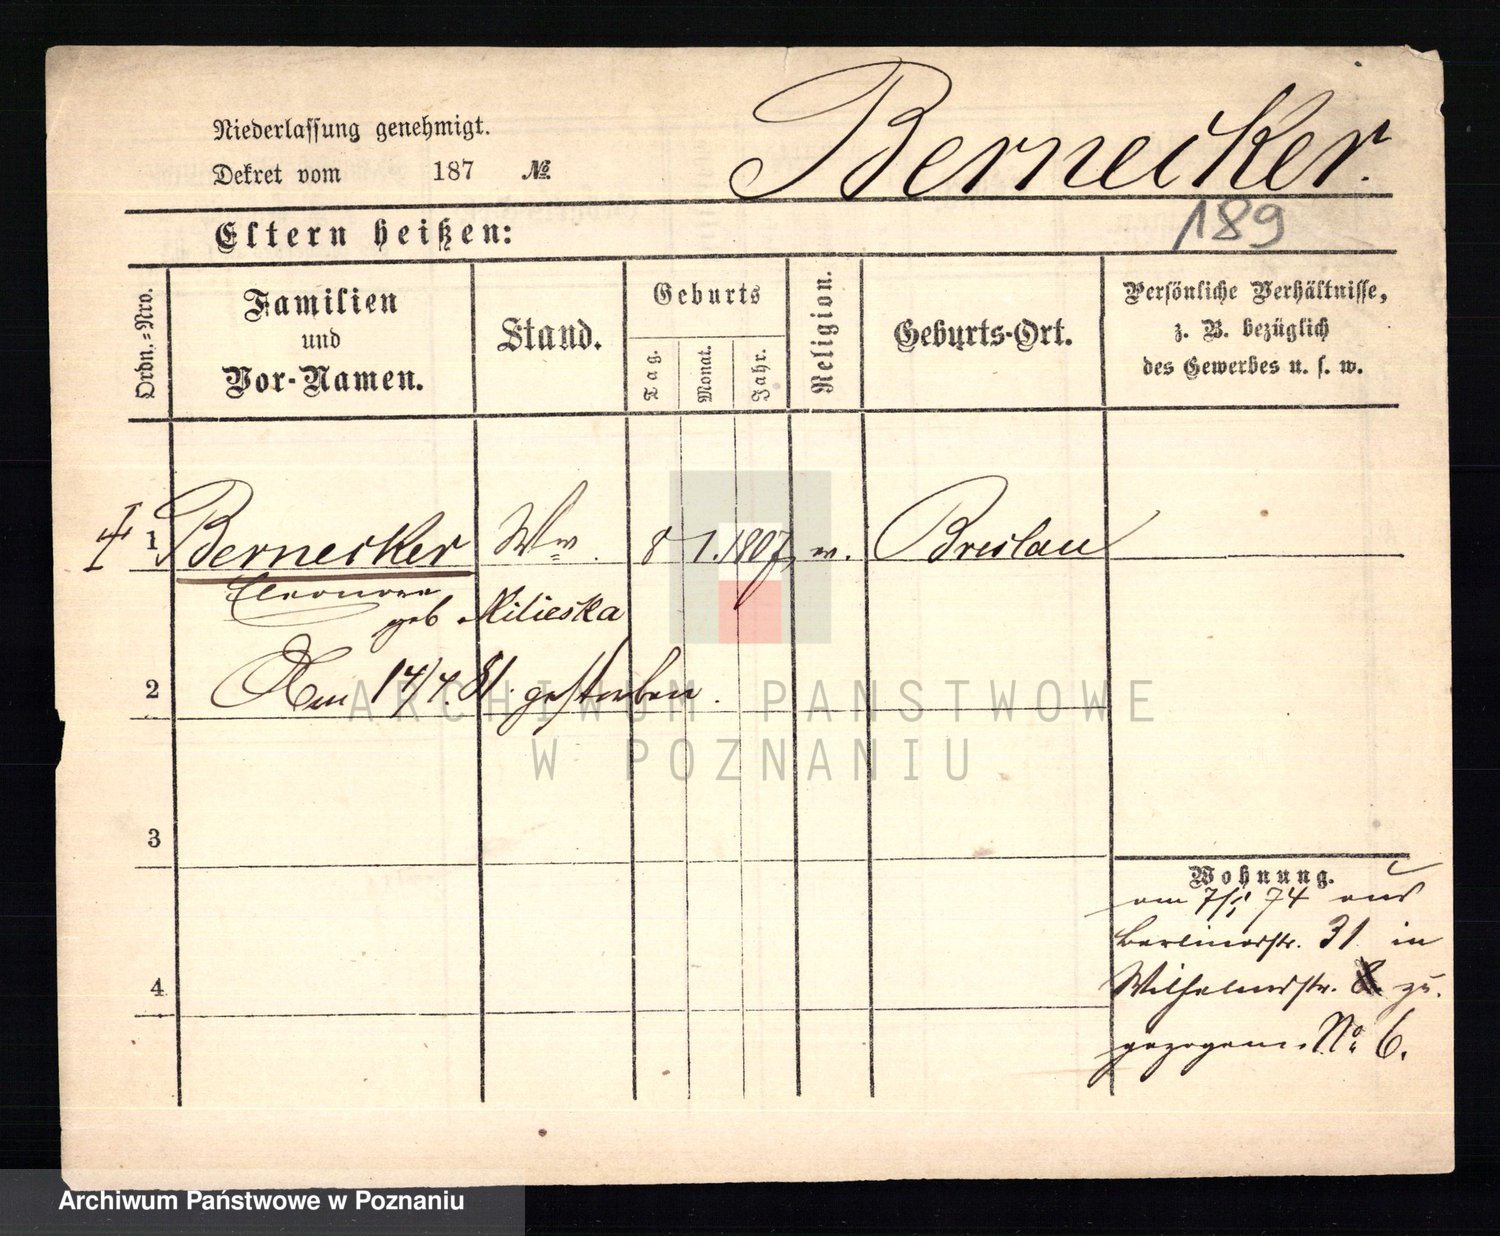 Niederlassung genehmigt.
Dekret vom 187 №
Bernecker.
189
Eltern heißen:
Ordn.-Nro.
Familien
und
Vor-Namen.
Stand.
Geburts
Tag.
Monat.
Jahr.
Religion.
Geburts-Ort.
Persönliche Verhältnisse,
z. B. bezüglich
des Gewerbes u. s. w.
1 Bernecker Ww. 8 1. 1807, Breslau
Eleonore
geb Milieska
2 Am 14/4. 81. gestorben.
3
4
Wohnung.
am 74 aus
Berlinerstr. 31 in
Wilhelmstr. 8 zu.
gezogen. No 6.
ARCHIWUM PAŃSTWOWE
W POZNANIU
Archiwum Państwowe w Poznaniu